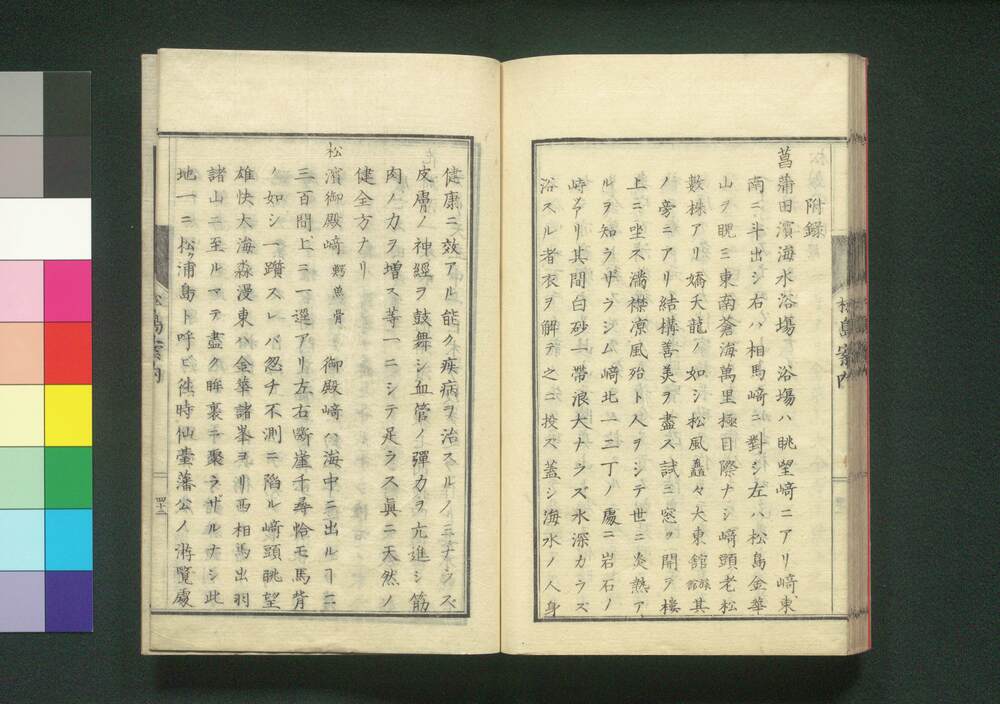 附錄
菖蒲田濱海水浴塲　浴塲ハ眺望﨑ニアリ﨑東、
南ニ斗出シ右ハ相馬﨑ニ對シ左ハ松島金華
山ヲ睨ミ東南蒼海萬里極目際ナシ﨑頭老松
數株アリ嬌夭龍ノ如シ松風矗々大東舘旅舘其
ノ旁ニアリ結構善美ヲ盡ス試ニ窓ヲ開ヲ樓
上ニ坐ス滿襟凉風殆ト人ヲシテ世ニ炎熱ア
ルヲ知ラザラシム﨑北一二丁ノ處ニ岩石ノ
峙アリ其間白砂一帶浪大ナラズ水深カラズ
浴スル者衣ヲ解テ之ニ投ス蓋シ海水ノ人身
松島案内
健康ニ效アル能ク疾病ヲ治スルノミナラズ
皮膚ノ神經ヲ鼓舞シ血管ノ彈力ヲ亢進シ筋
肉ノ力ヲ増ス等一ニシテ足ラス眞ニ天然ノ
健全方ナリ
松濱御殿﨑　御殿﨑ハ海中ニ出ルヿ二
三百間上ニ一逕アリ左右斷崖千尋恰モ馬背
ノ如シ一躓スレバ忽チ不測ニ陷ル﨑頭眺望
雄快大海森漫東ハ金華諸峯ヨリ西相馬出羽
諸山ニ至ルマデ盡ク眸裏ニ聚ラザルナシ此
地一ニ松ヶ浦島ト呼ビ徃時仙臺藩公ノ游覽處
松島案内
四十二